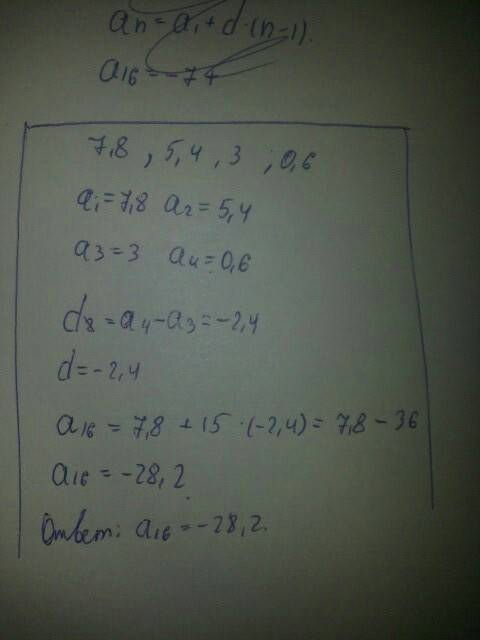 an = a1 + d·(n-1).
a16 = -74
7,8 , 5,4 , 3 , 0,6
a1 = 7,8 a2 = 5,4
a3 = 3 a4 = 0,6
d8 = a4 - a3 = -2,4
d = -2,4
a16 = 7,8 + 15 · (-2,4) = 7,8 - 36
a16 = -28,2
Ответ: a16 = -28,2.